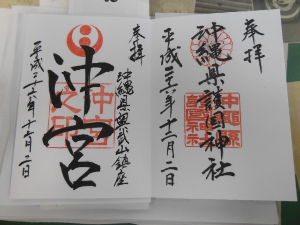 奉拝
沖縄県護国神社
平成二十六年十二月二日
奉拝
沖縄県奥武山鎮座
沖宮
沖宮之印
平成二十六年十二月二日